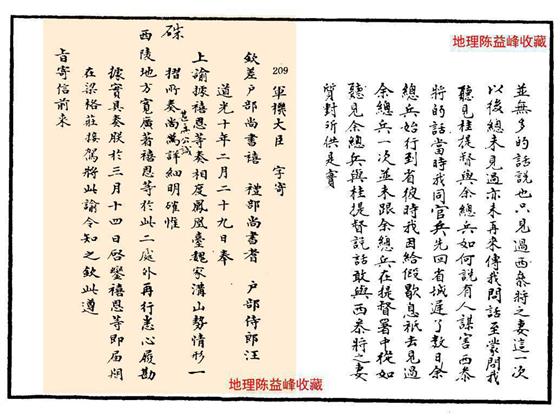 地理陈益峰收藏
並無多的話說也只見過西叅將之妻這一次
以後總未見過亦未再來傳我問話至蒙問我
聽見桂提督與余總兵如何說有人謀害西叅
將的話當時我同官兵先回省城遲了數日余
總兵始行到省彼時我因給假歇息祇去見過
余總兵一次並未跟余總兵在提督署中從如
聽見余總兵與桂提督說話敢與西叅將之妻
質對所供是實
209 軍機大臣 字寄
欽差戶部尚書禧 禮部尚書耆 戶部侍郎汪
道光十年二月二十九日奉
上諭據禧恩等奏相度鳳凰臺魏家溝山勢情形一
摺所奏尚為詳細明確惟
公誠
硃
西陵地方寬廣著禧恩等於此二處外再行悉心履勘
據實具奏朕於三月十四日啓鑾禧恩等即屆期
在梁格莊接駕將此諭令知之欽此遵
旨寄信前來
地理陈益峰收藏